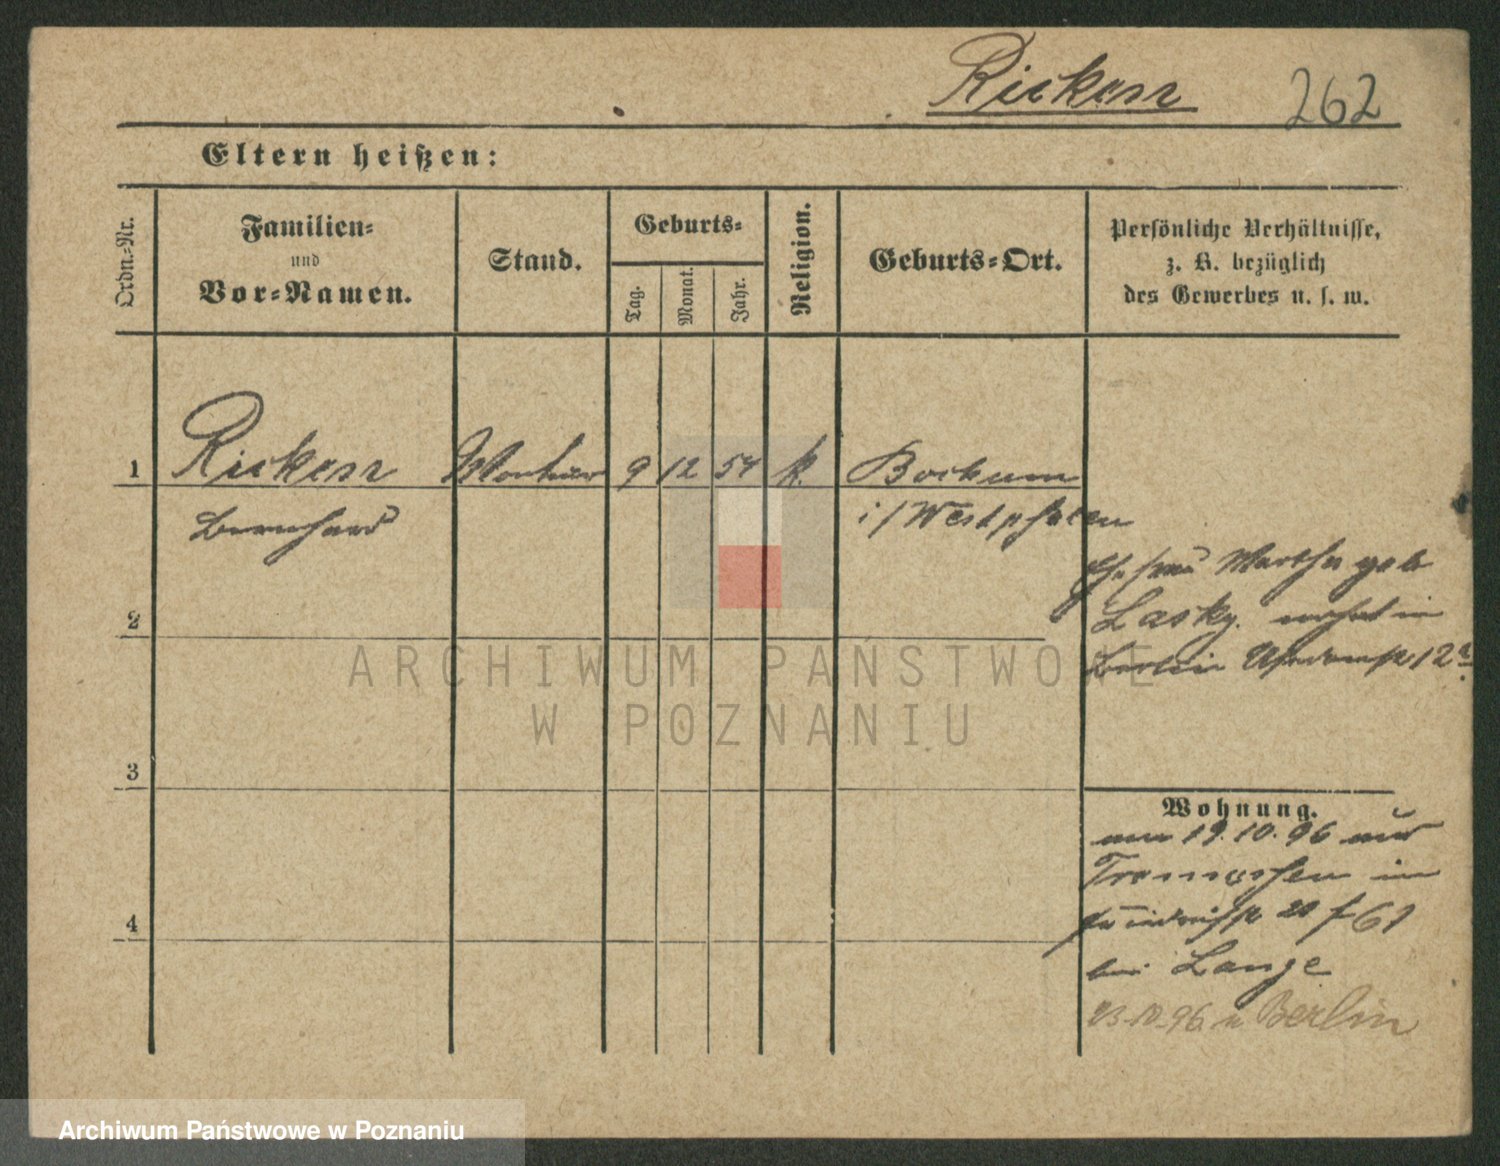 Ricken 262
Eltern heißen:
Ordn.-Nr.
Familien-
und
Vor-Namen.
Stand.
Geburts-
Tag.
Monat.
Jahr.
Religion.
Geburts-Ort.
Persönliche Verhältnisse,
z. B. bezüglich
des Gewerbes u. s. w.
1 Ricken 9 12 54 k. Bochum
Bernhard i/Westphalen
Ehefrau Martha geb
Lasky. wohnt in
2
Berlin 12a
3
Wohnung.
19.10.96 aus
Tremessen in
20 61
bei Lange
4
23.10.96 n Berlin
ARCHIWUM PAŃSTWOWE
W POZNANIU
Archiwum Państwowe w Poznaniu